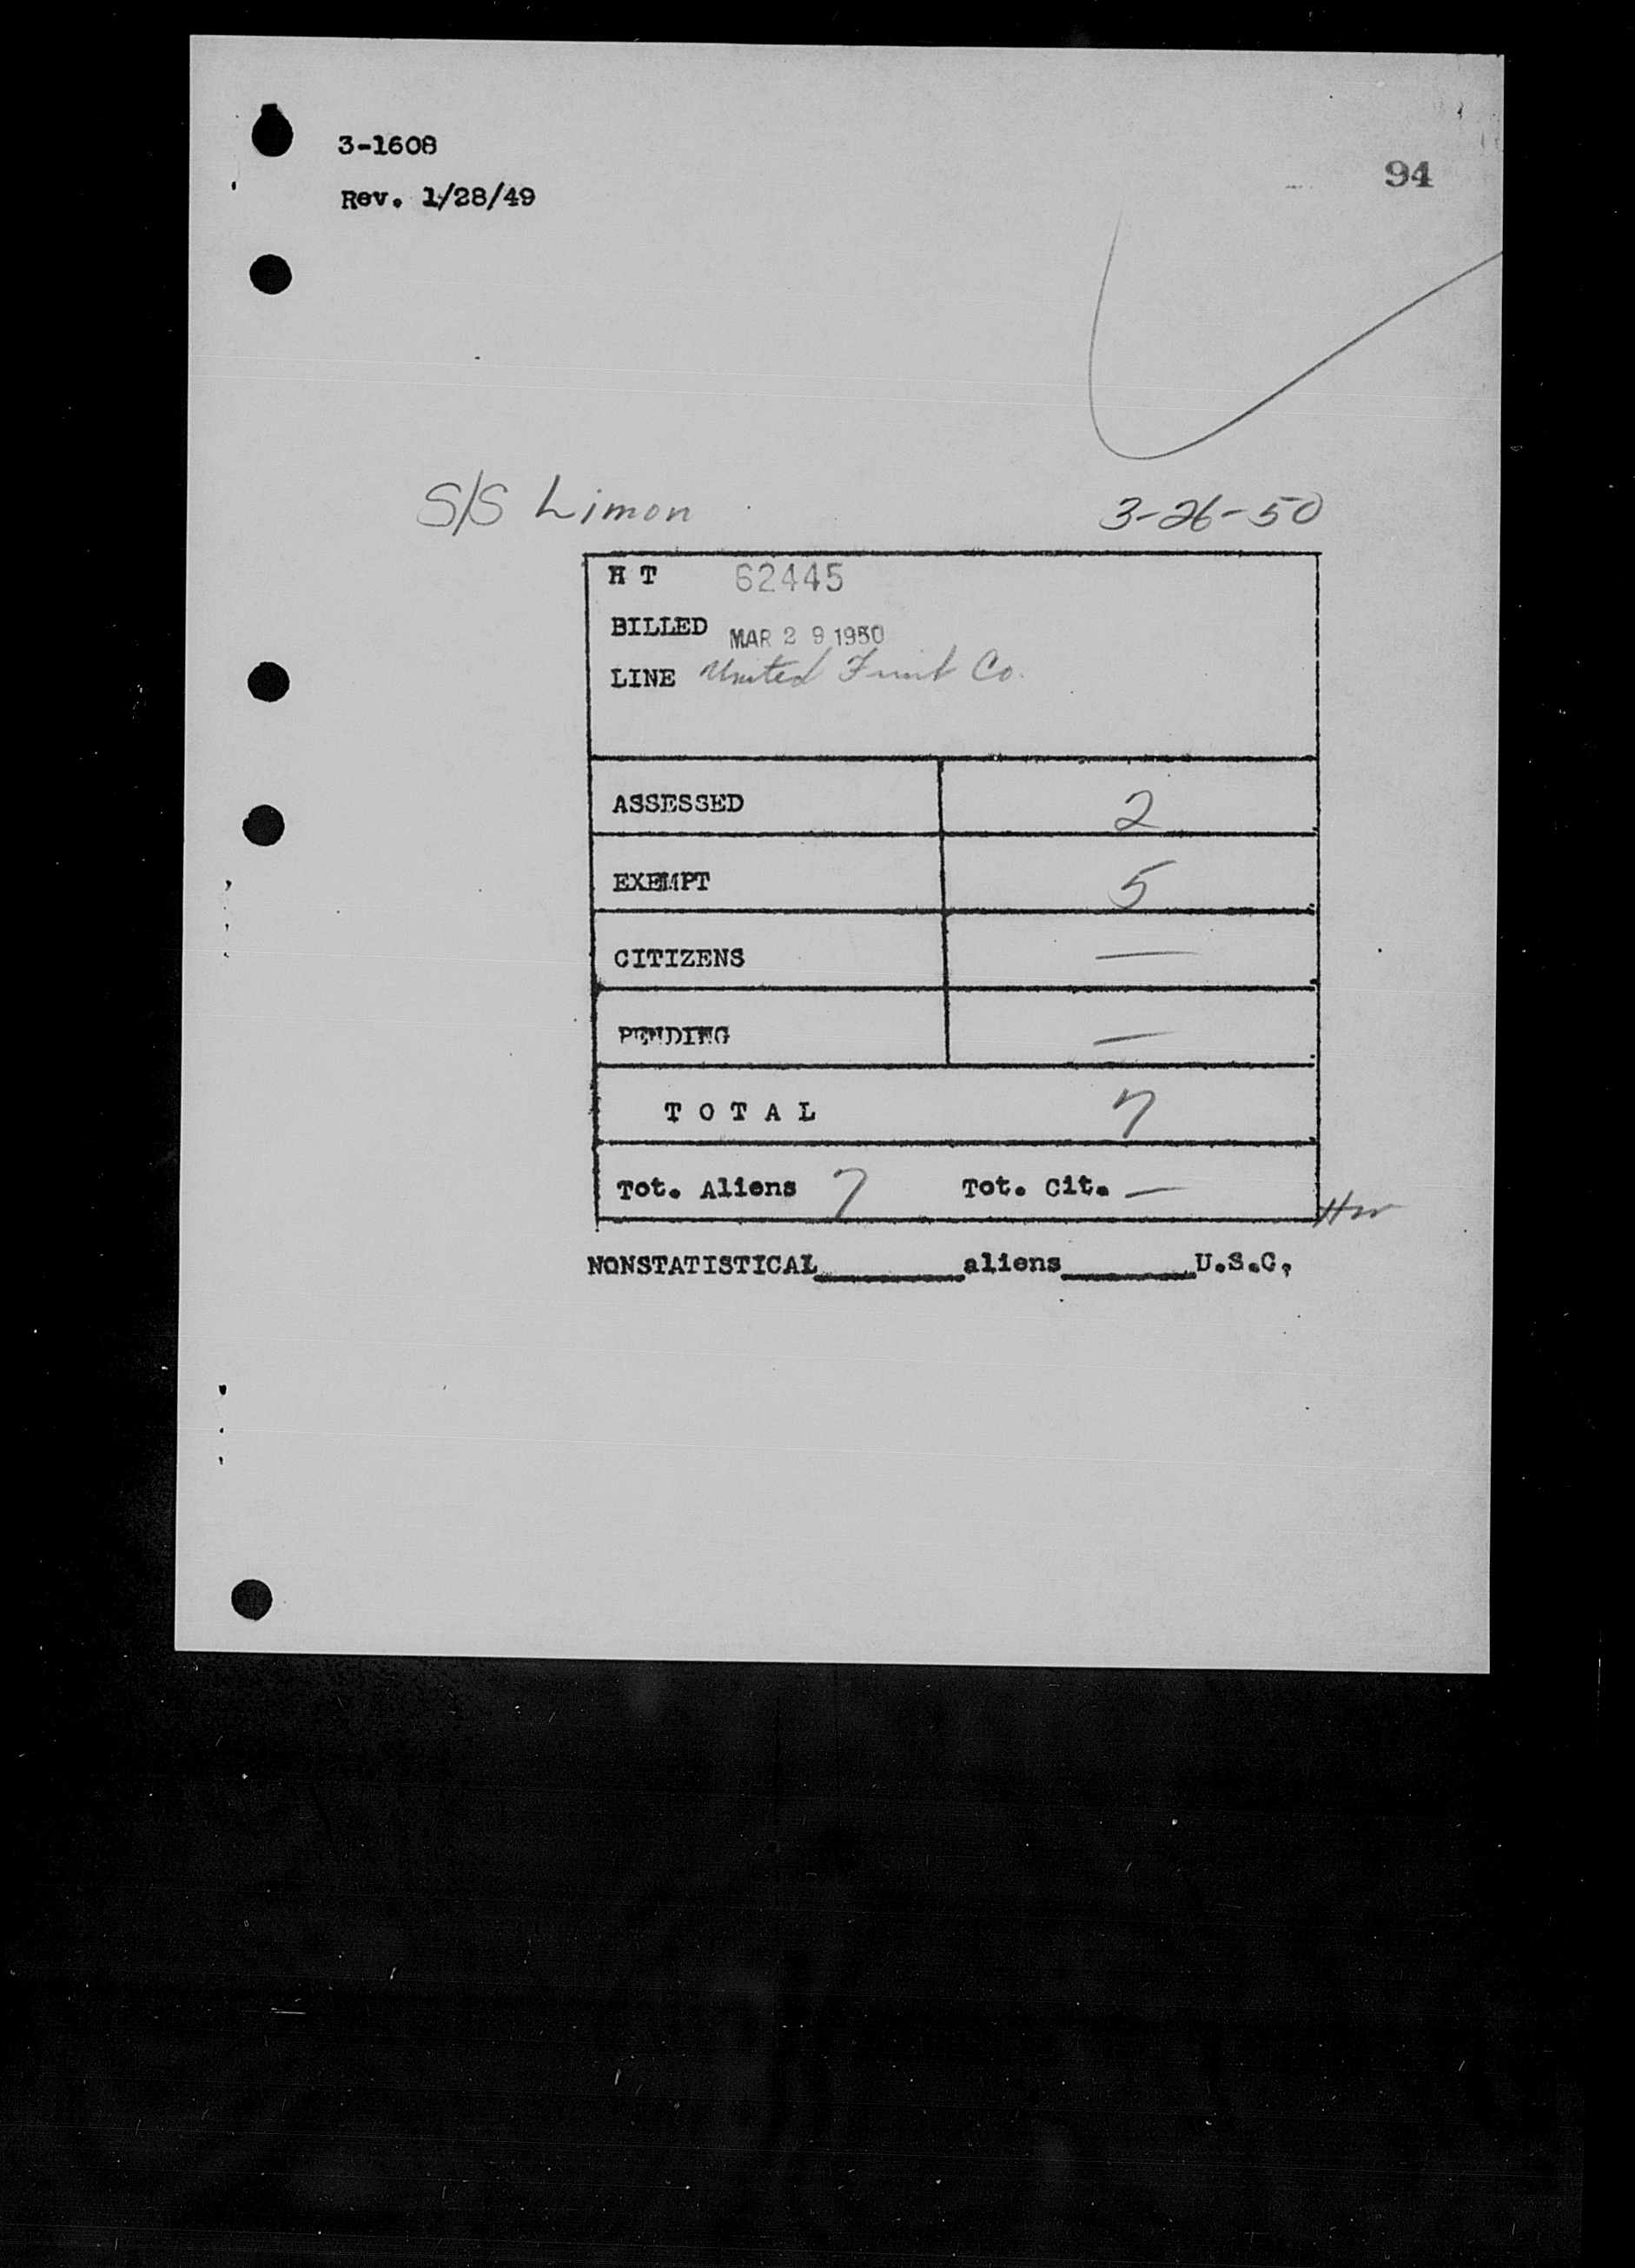 3-1608
94
Rev. 1/28/49
S/S Limon 3-26-50
H T 62445
BILLED MAR 29 1950
LINE United Fruit Co.
ASSESSED 2
EXEMPT 5
CITIZENS —
PENDING —
T O T A L 7
Tot. Aliens 7 Tot. Cit. —
HW
NONSTATISTICAL________aliens________U.S.C.